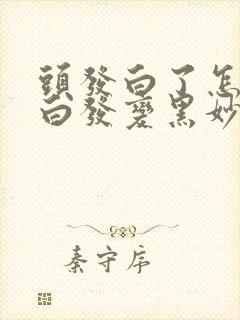 頭發白了怎
白發變黑妙
秦守序